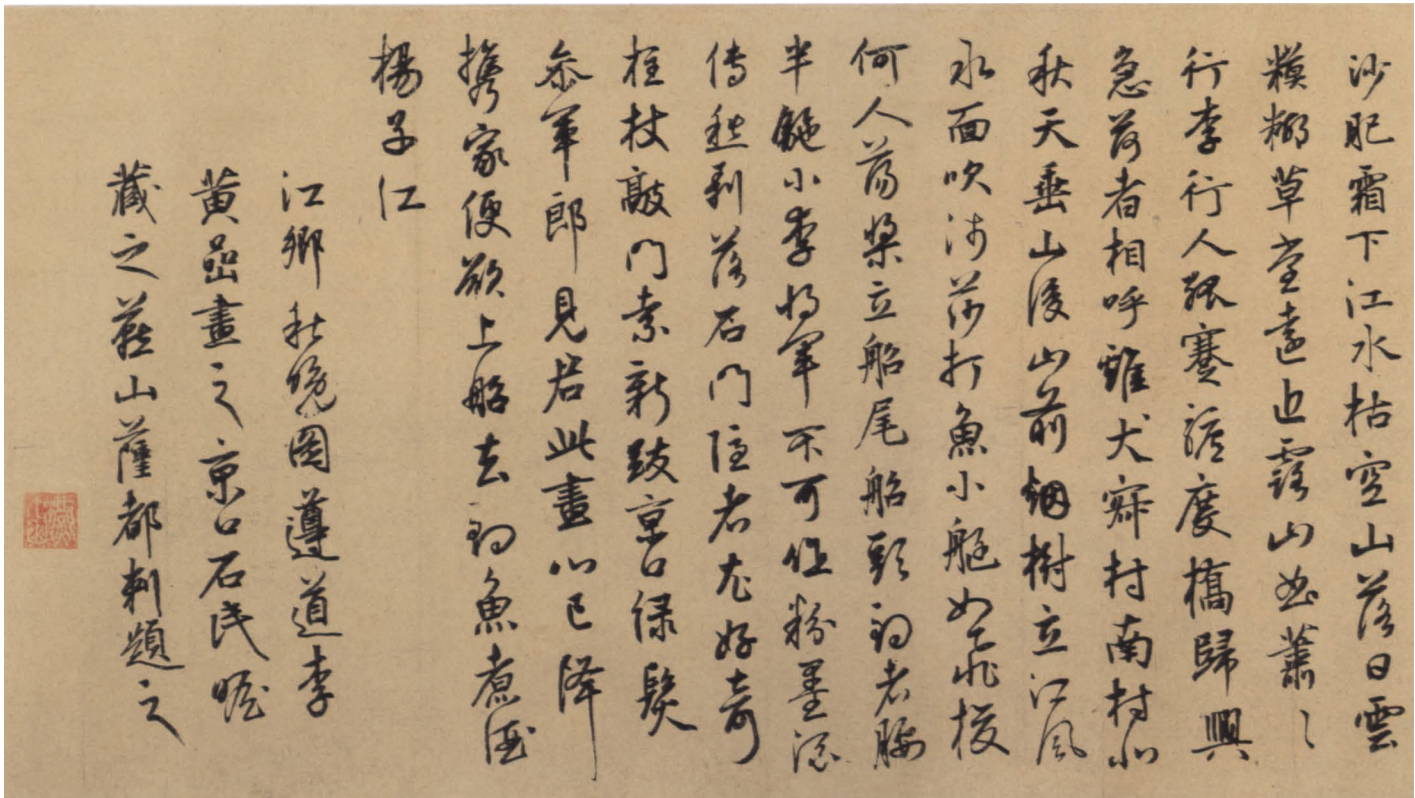 沙肥霜下江水枯空山落日雲
糢糊草堂遠近露山蕭〻
行李行人孤蹇驢度橋歸興
急荷者相呼雞犬寂村南村北
秋天垂山後山前烟樹立江風
水面吹莎打魚小艇如飛梭
何人蕩槳立船尾船頭釣者腰
半駝小李將軍不可作粉墨流
傳愁剥落石門隐者尤好奇
拄杖敲門索新跋京口緑髮
參軍郎見君此畫心已降
携家便欲上船去釣魚煮酒
楊子江
江鄉秋晚圖遵道李
黄嵒畫之京口石民瞻
藏之燕山薩都剌題之